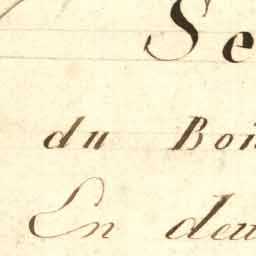 Se
du Boi
En deu